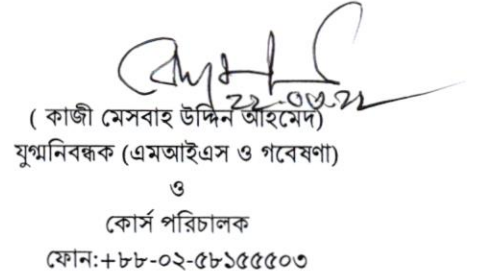 ২২.০৩.২২
( কাজী মেসবাহ উদ্দিন আহমেদ)
যুগ্মনিবন্ধক (এমআইএস ও গবেষণা)
ও
কোর্স পরিচালক
ফোন:+৮৮-০২-৫৮১৫৫৫০৩